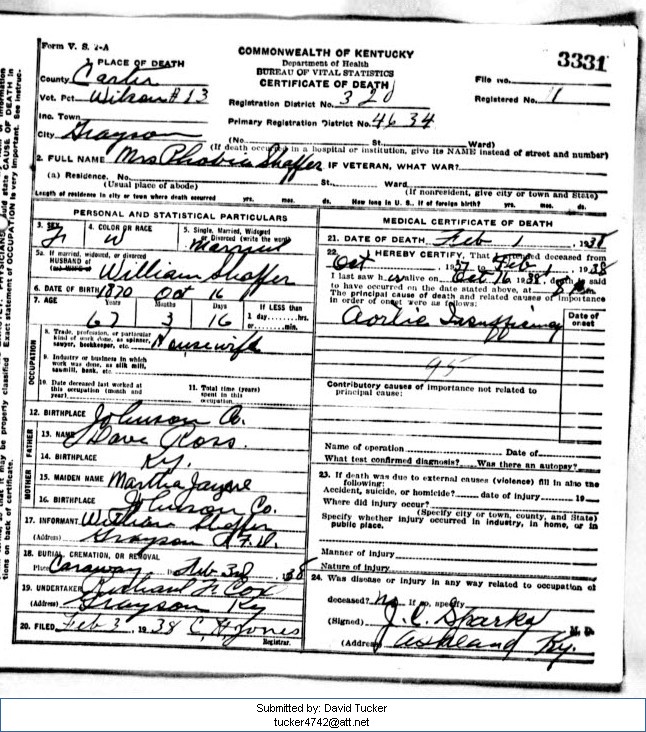 Form V. S. 1-A
3331
PLACE OF DEATH
County Carter
Vot. Pct. Wilson #13
Inc. Town
City Grayson
COMMONWEALTH OF KENTUCKY
Department of Health
BUREAU OF VITAL STATISTICS
CERTIFICATE OF DEATH
Registration District No. 320
Primary Registration District No. 4634
File No.
Registered No. 1
(No. St. Ward)
(If death occurred in a hospital or institution, give its NAME instead of street and number)
2. FULL NAME Mrs Phobia Shaffer IF VETERAN, WHAT WAR?
(a) Residence. No. St., Ward
(Usual place of abode) (If nonresident, give city or town and State)
Length of residence in city or town where death occurred yrs. mos. ds. How long in U. S., if of foreign birth? yrs. mos. ds.
PERSONAL AND STATISTICAL PARTICULARS
3. SEX 4. COLOR OR RACE 5. Single, Married, Widowed or Divorced (write the word)
F W Married
5a. If married, widowed, or divorced
HUSBAND of
(or) WIFE of William Shaffer
6. DATE OF BIRTH 1870 Oct 16
7. AGE Years Months Days If LESS than
67 3 16 1 day, hrs. or min.
OCCUPATION
8. Trade, profession, or particular kind of work done, as spinner, sawyer, bookkeeper, etc. Housewife
9. Industry or business in which work was done, as silk mill, sawmill, bank, etc.
10. Date deceased last worked at this occupation (month and year)
11. Total time (years) spent in this occupation
12. BIRTHPLACE Johnson Co.
FATHER
13. NAME Dave Ross
14. BIRTHPLACE Ky.
MOTHER
15. MAIDEN NAME Martha Jayne
16. BIRTHPLACE Johnson Co.
17. INFORMANT William Shaffer
(Address) Grayson R.F.D.
18. BURIAL, CREMATION, OR REMOVAL
Place Caraway Date Feb 3rd 38
19. UNDERTAKER Richard F. Cox
(Address) Grayson Ky
20. FILED Feb 3, 1938 C. H. Jones
Registrar.
MEDICAL CERTIFICATE OF DEATH
21. DATE OF DEATH Feb 1, 1938
22. I HEREBY CERTIFY, That I attended deceased from
Oct 1937 to Feb 1, 1938
I last saw her alive on Oct 16, 1938, death is said
to have occurred on the date stated above, at
The principal cause of death and related causes of importance
in order of onset were as follows:
Date of onset
Aortic Insufficiency
95
Contributory causes of importance not related to
principal cause:
Name of operation Date of
What test confirmed diagnosis? Was there an autopsy?
23. If death was due to external causes (violence) fill in also the following:
Accident, suicide, or homicide? date of injury 19
Where did injury occur?
(Specify city or town, county, and State)
Specify whether injury occurred in industry, in home, or in
public place.
Manner of injury
Nature of injury
24. Was disease or injury in any way related to occupation of
deceased? No If so, specify
(Signed) J. C. Sparks M. D.
(Address) Ashland Ky.
Submitted by: David Tucker
tucker4742@att.net